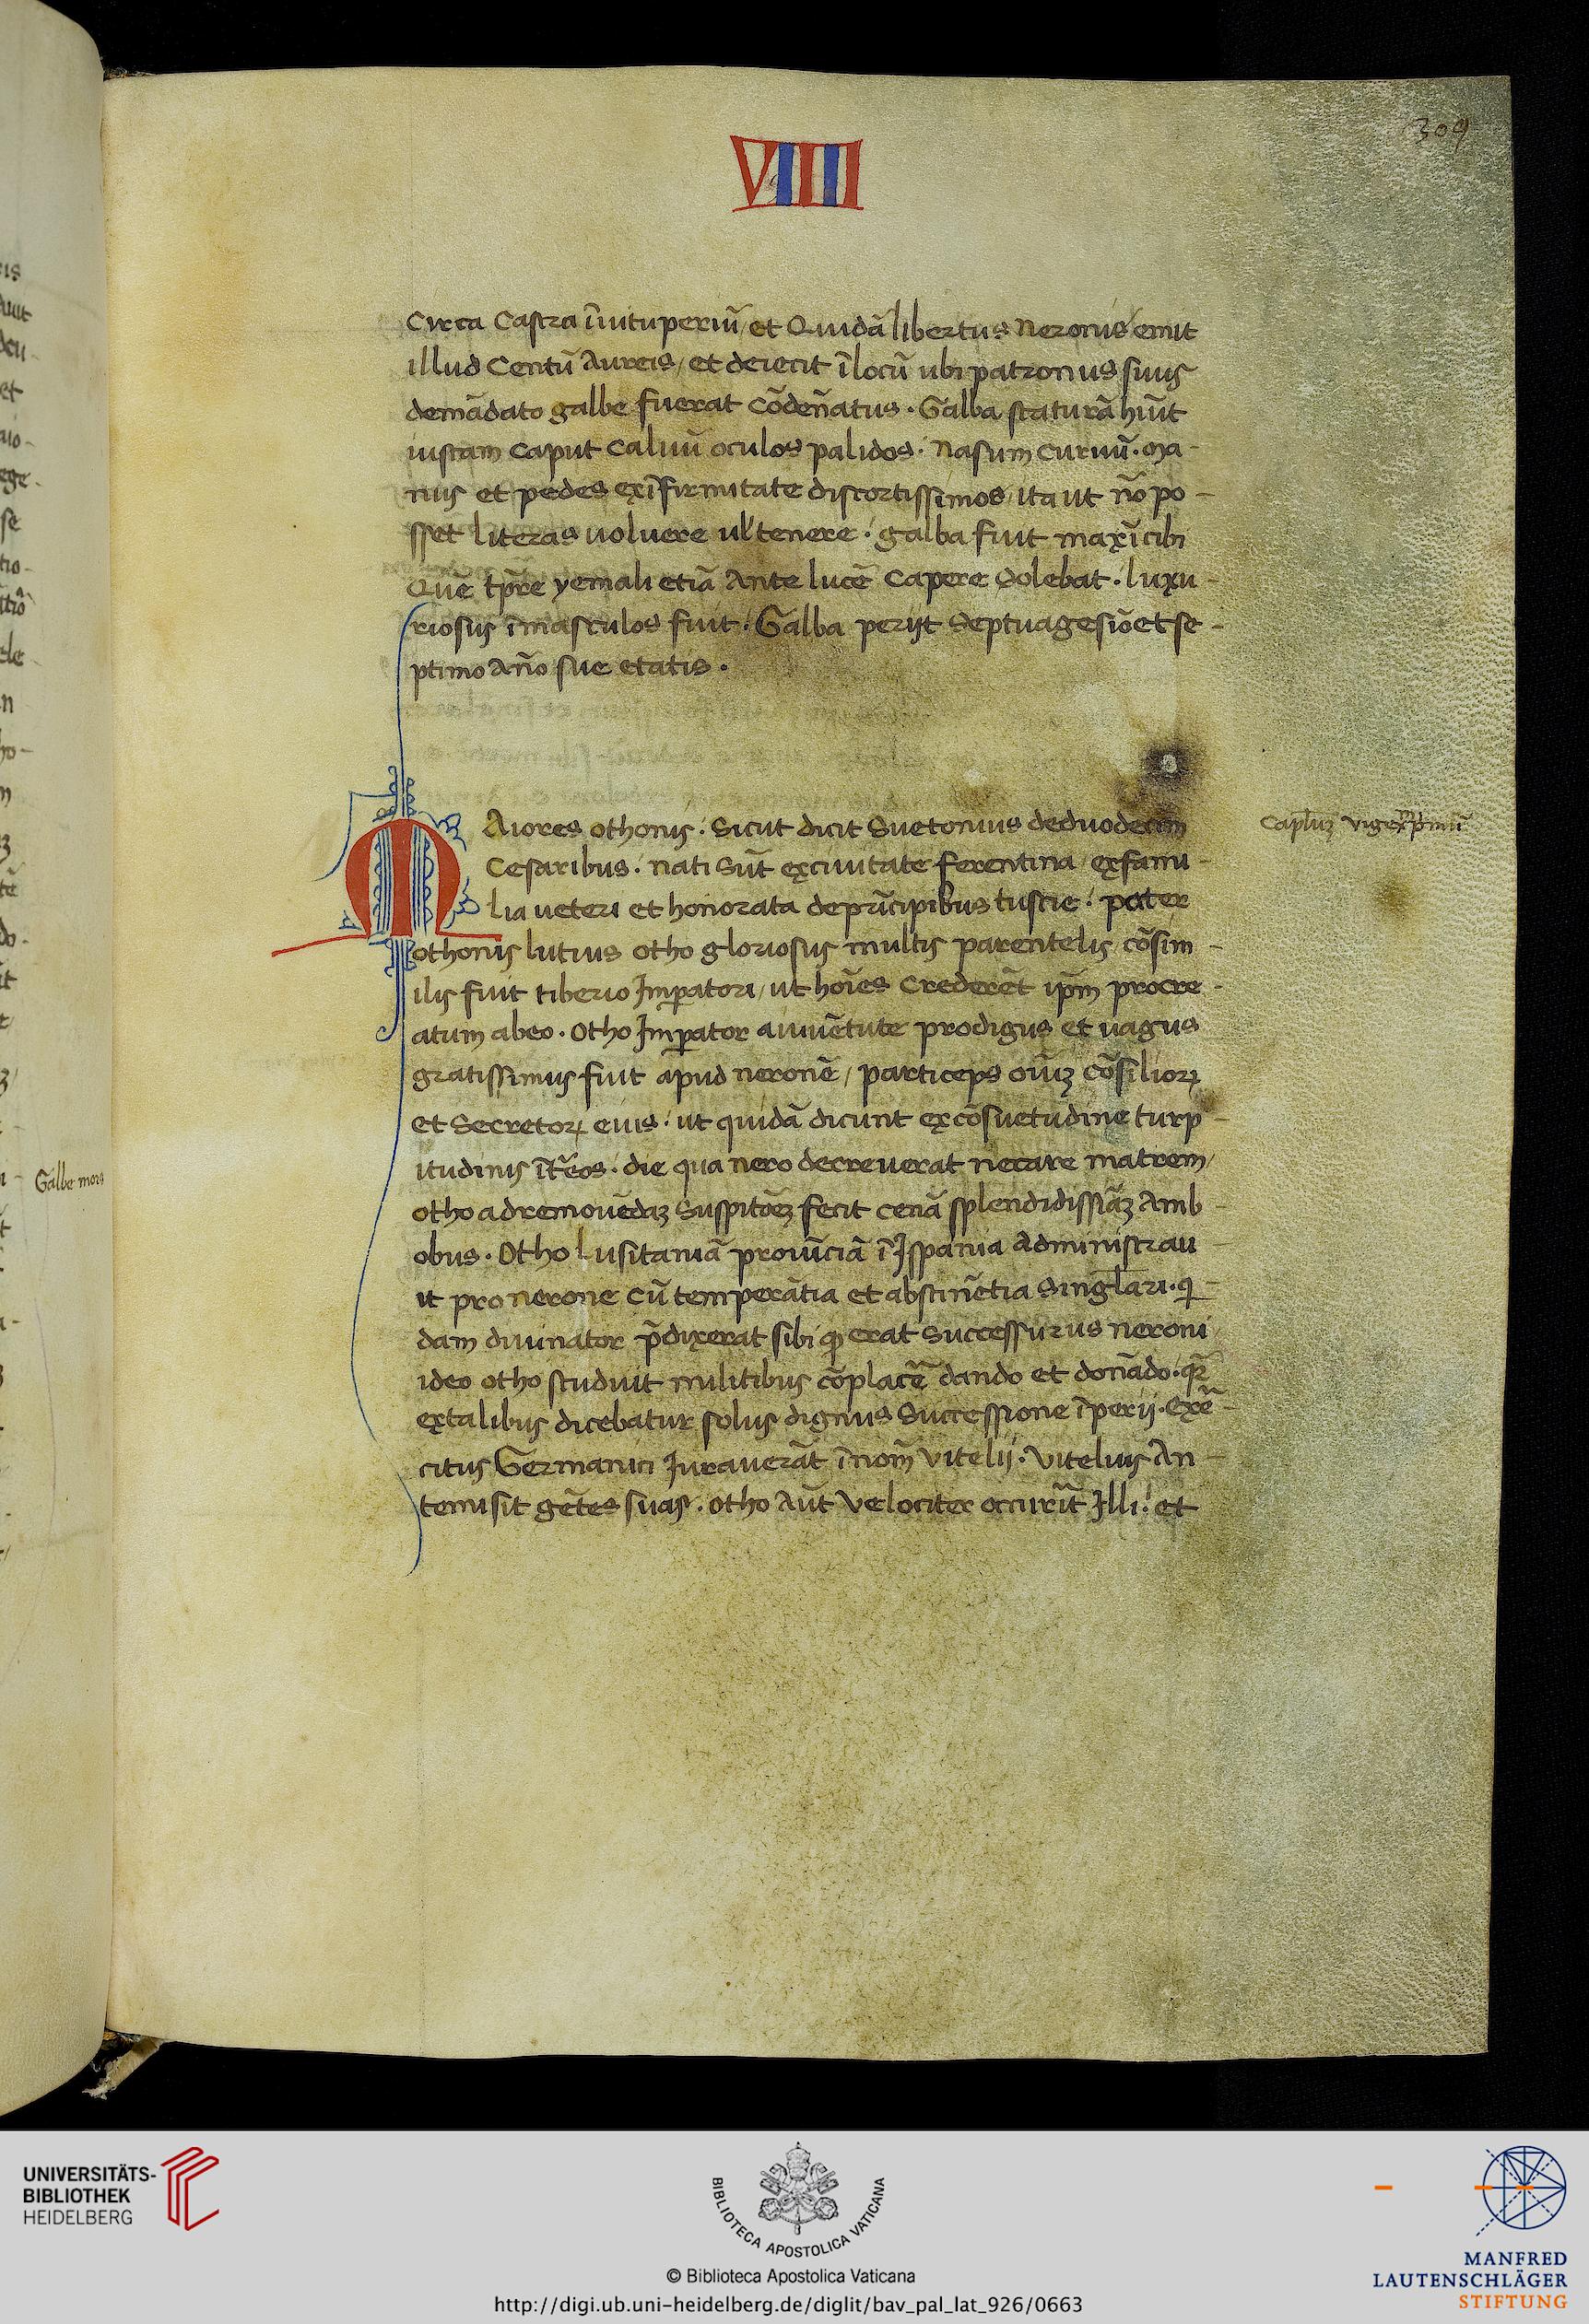 309
VIIII
Circa Castra ĩ uituperiũ / et Quidã libertus Neronis emit
illud Centũ Aureis / et deiecit ĩ locũ ubi patronus suus
de mãdato galbe fuerat cõdeñatus. Galba staturã hũit
iustam caput caluũ oculos palidos. Nasum curuũ. Ma-
nus et pedes ex ĩfirmitate distortissimos ita ut nõ po-
sset literas uoluere ul' tenere. galba fuit maxĩ cibi
Quẽ tp̃re yemali etiã Ante lucẽ Capere Solebat. luxu-
riosus ĩ masculos fuit. Galba perijt Septuagesiõ et se-
ptimo Año sue etatis.
MAiores othonis. Sicut dicit Suetonius de duodecim
Cesaribus. nati Sũt ex ciuitate ferentina / ex fami-
lia ueteri et honorata de prĩcipibus tuscie. pater
othonis lutius otho gloriosus multis parentelis cõsim-
ilis fuit tiberio Imꝑatori / ut hoĩes Crederẽt ip̃m procre-
atum ab eo. Otho Imꝑator a iuuẽtute prodigus et uagus
gratissimus fuit apud neronẽ / particeps oĩuꝫ cõsilioꝝ
et Secretoꝝ eius. ut quidã dicunt ex cõsuetudine turp-
itudinis ĩt̃ eos. die qua nero decreuerat necare matrem /
otho ad remouẽdaꝫ Suspitõeꝫ fecit cenã splendidissiãꝫ Amb-
obus. Otho Lusitaniã prouĩciã ĩ Ispania Administrau-
it pro nerone cũ temperãtia et abstinẽtia Singlari. q̃-
dam diuinator p̃dixerat sibi ꝙ erat Successurus neroni
ideo otho studuit militibus cõplacẽ dando et donãdo. qr̃
ex talibus dicebatur solus dignus Successione ĩperij. Exẽ-
citus Germanici Iurauerãt ĩ nom̃ Vitelij. Vitelius An-
temisit gẽtes suas. otho Aũt Velociter occurĩt Illi. et
Capl'uꝫ
Galbe mors
UNIVERSITÄTS-
BIBLIOTHEK
HEIDELBERG
BIBLIOTECA APOSTOLICA VATICANA
© Biblioteca Apostolica Vaticana
http://digi.ub.uni-heidelberg.de/diglit/bav_pal_lat_926/0663
MANFRED
LAUTENSCHLÄGER
STIFTUNG